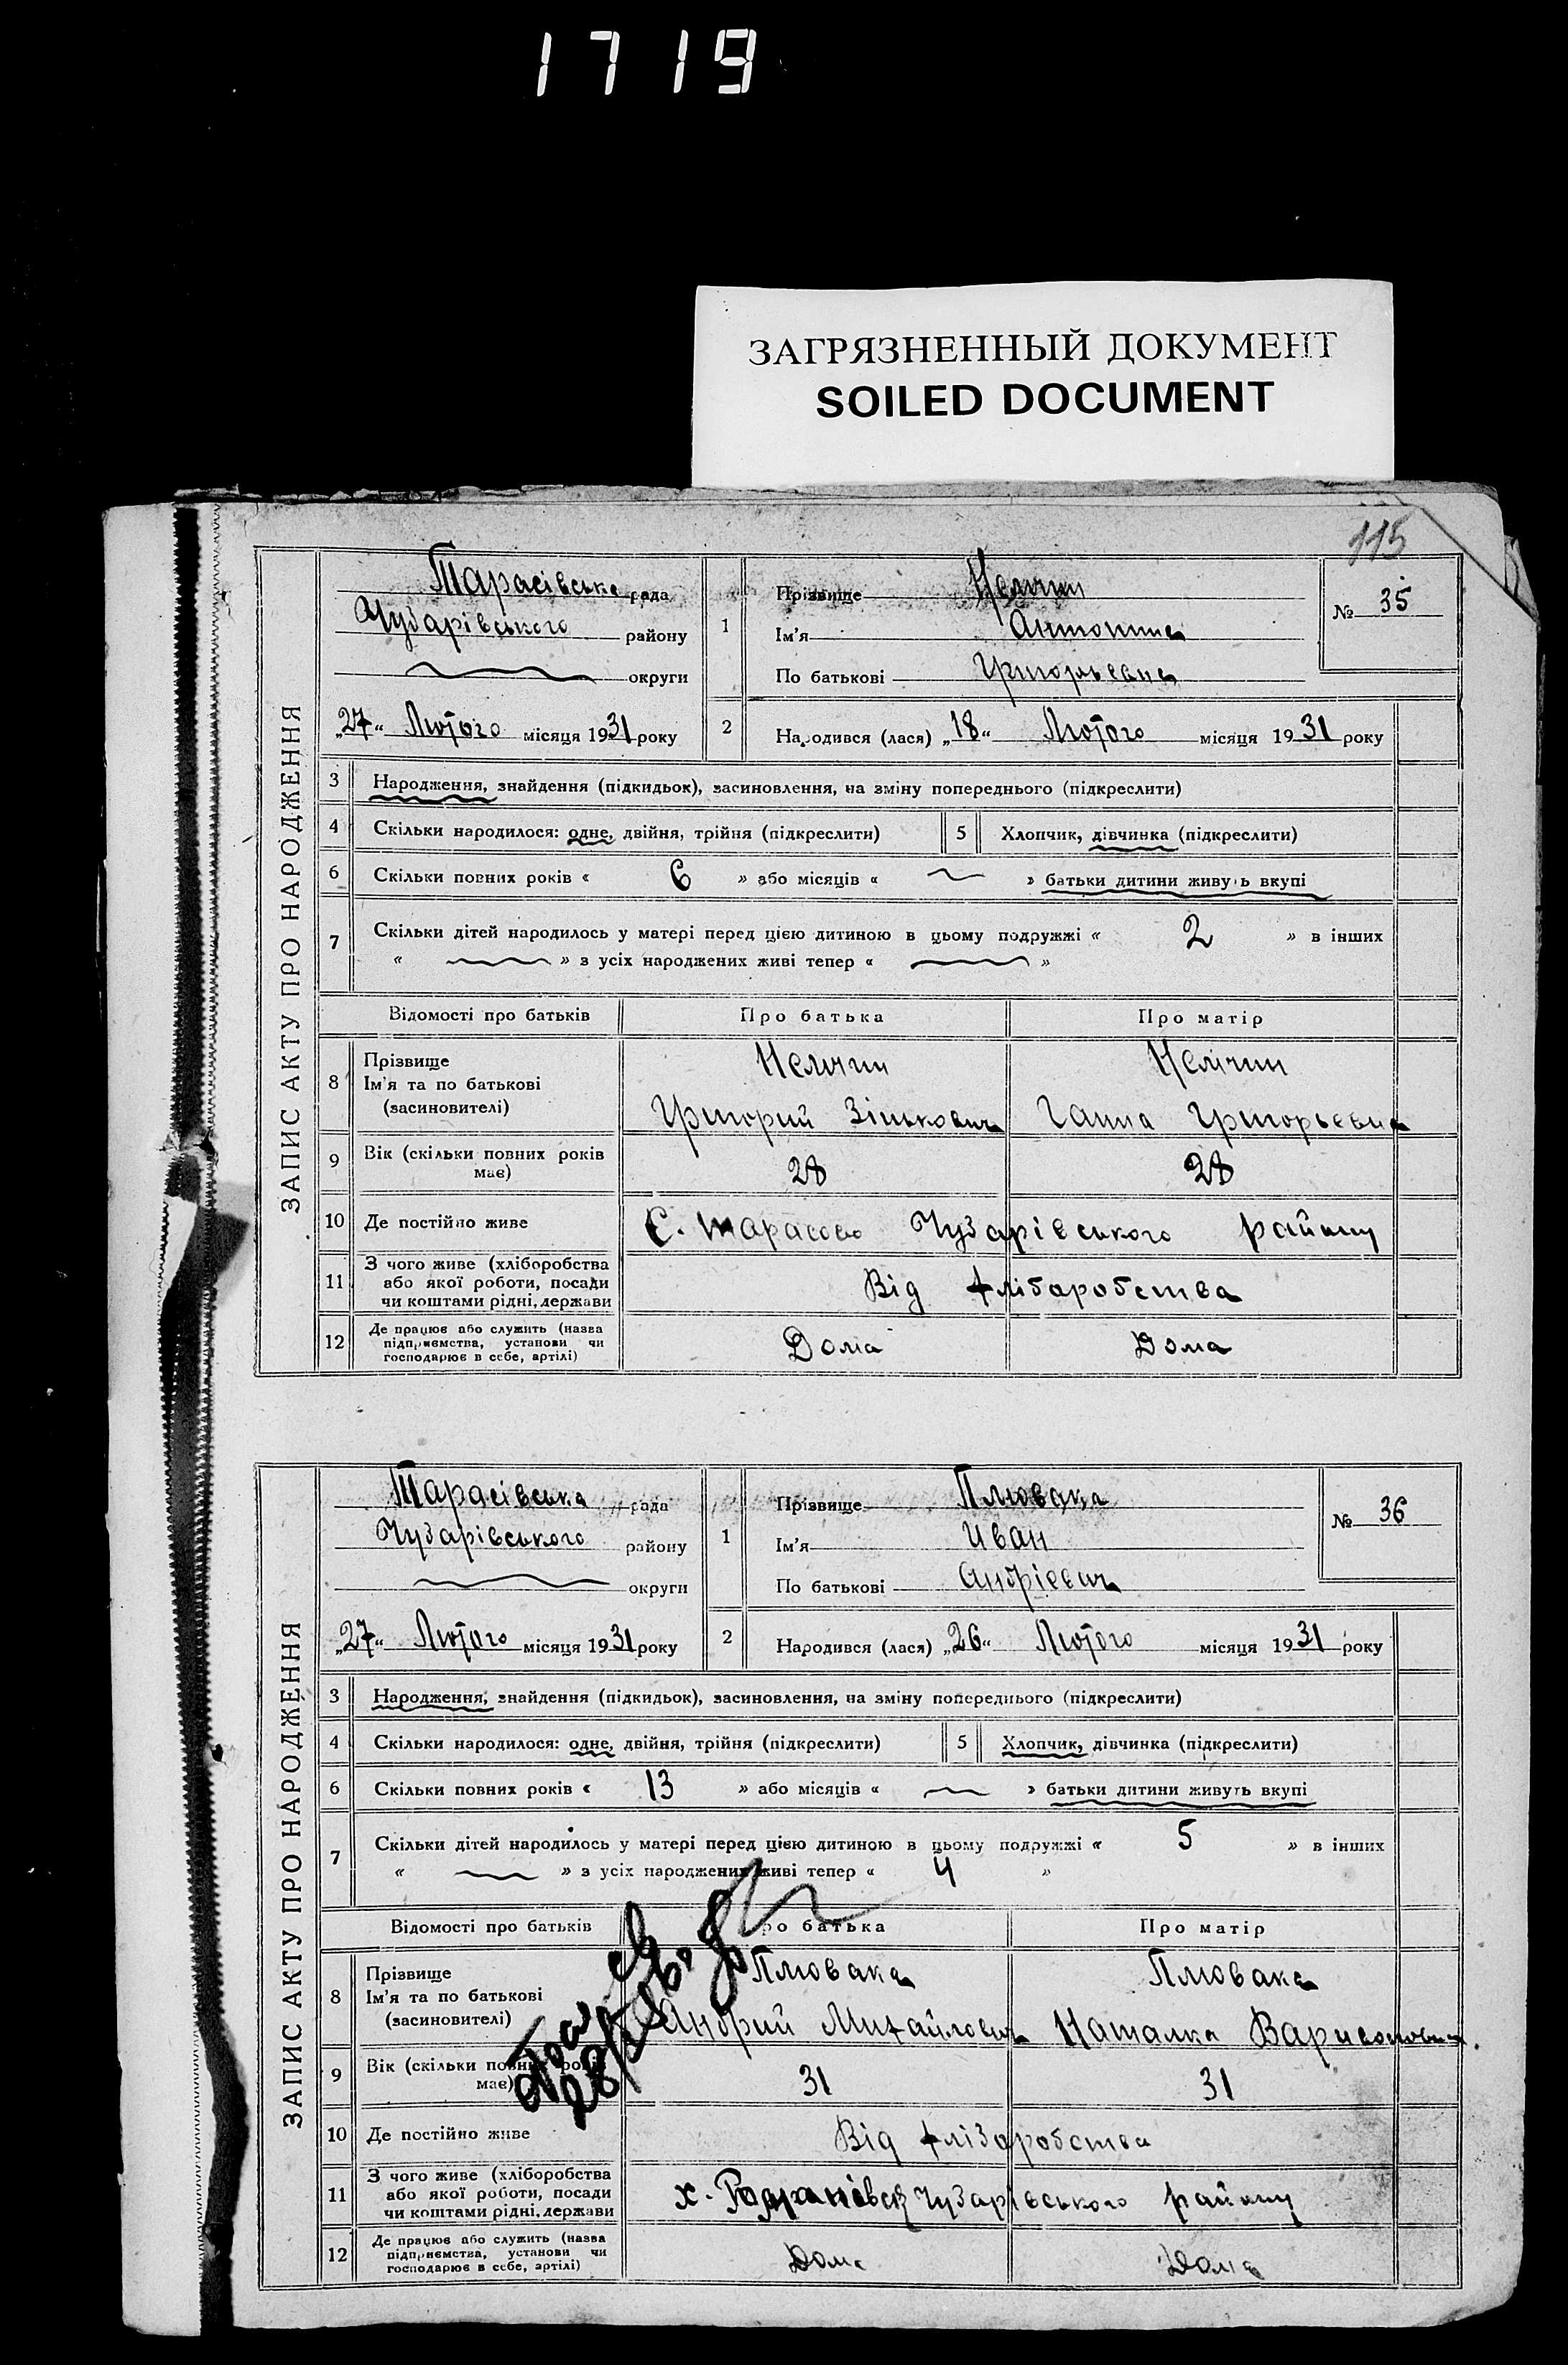 1719
ЗАГРЯЗНЕННЫЙ ДОКУМЕНТ
SOILED DOCUMENT
115
ЗАПИС АКТУ ПРО НАРОДЖЕННЯ
Тарасівська рада
Чубарівського району
округи
„27“ Лютого місяця 1931 року
1
Прізвище
Ім'я Антонина
По батькові Григорьевна
№ 35
2
Народився (лася) „18“ Лютого місяця 1931 року
3 Народження, знайдення (підкидьок), засиновлення, на зміну попереднього (підкреслити)
4 Скільки народилося: одне, двійня, трійня (підкреслити) 5 Хлопчик, дівчинка (підкреслити)
6 Скільки повних років « 6 » або місяців « » батьки дитини живуть вкупі
7 Скільки дітей народилось у матері перед цією дитиною в цьому подружжі « 2 » в інших
« » з усіх народжених живі тепер « »
Відомості про батьків Про батька Про матір
8 Прізвище
Ім'я та по батькові
(засиновителі)
Григорий Зінькович Ганна Григорьевна
9 Вік (скільки повних років має) 28 28
10 Де постійно живе С. Тарасово Чубарівського району
11 З чого живе (хліборобства
або якої роботи, посади
чи коштами рідні, держави
Від хліборобства
12 Де працює або служить (назва
підприємства, установи чи
господарює в себе, артілі)
Дома Дома
ЗАПИС АКТУ ПРО НАРОДЖЕННЯ
Тарасівська рада
Чубарівського району
округи
„27“ Лютого місяця 1931 року
1
Прізвище Плювака
Ім'я Иван
По батькові Андрієвич
№ 36
2
Народився (лася) „26“ Лютого місяця 1931 року
3 Народження, знайдення (підкидьок), засиновлення, на зміну попереднього (підкреслити)
4 Скільки народилося: одне, двійня, трійня (підкреслити) 5 Хлопчик, дівчинка (підкреслити)
6 Скільки повних років « 13 » або місяців « » батьки дитини живуть вкупі
7 Скільки дітей народилось у матері перед цією дитиною в цьому подружжі « 5 » в інших
« » з усіх народжених живі тепер « 4 »
Відомості про батьків Про батька Про матір
8 Прізвище
Ім'я та по батькові
(засиновителі)
Плювака Плювака
Андрий Михайлович Наталка
9 Вік (скільки повних років має) 31 31
10 Де постійно живе Від хліборобства
11 З чого живе (хліборобства
або якої роботи, посади
чи коштами рідні, держави
х. Чубарівського району
12 Де працює або служить (назва
підприємства, установи чи
господарює в себе, артілі)
Дома Дома